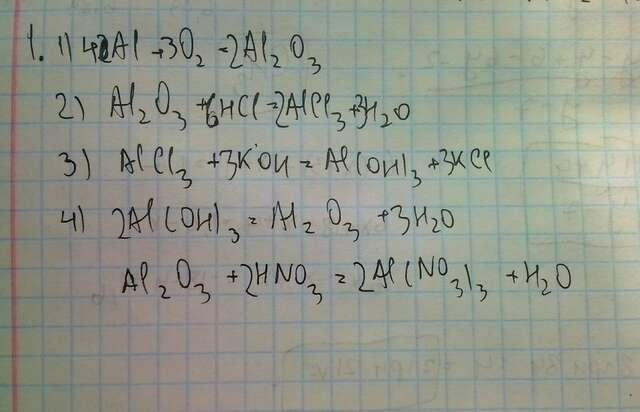 1. 1) 4Al + 3O₂ = 2Al₂O₃
2) Al₂O₃ + 6HCl = 2AlCl₃ + 3H₂O
3) AlCl₃ + 3KOH = Al(OH)₃ + 3KCl
4) 2Al(OH)₃ = Al₂O₃ + 3H₂O
Al₂O₃ + 2HNO₃ = 2Al(NO₃)₃ + H₂O